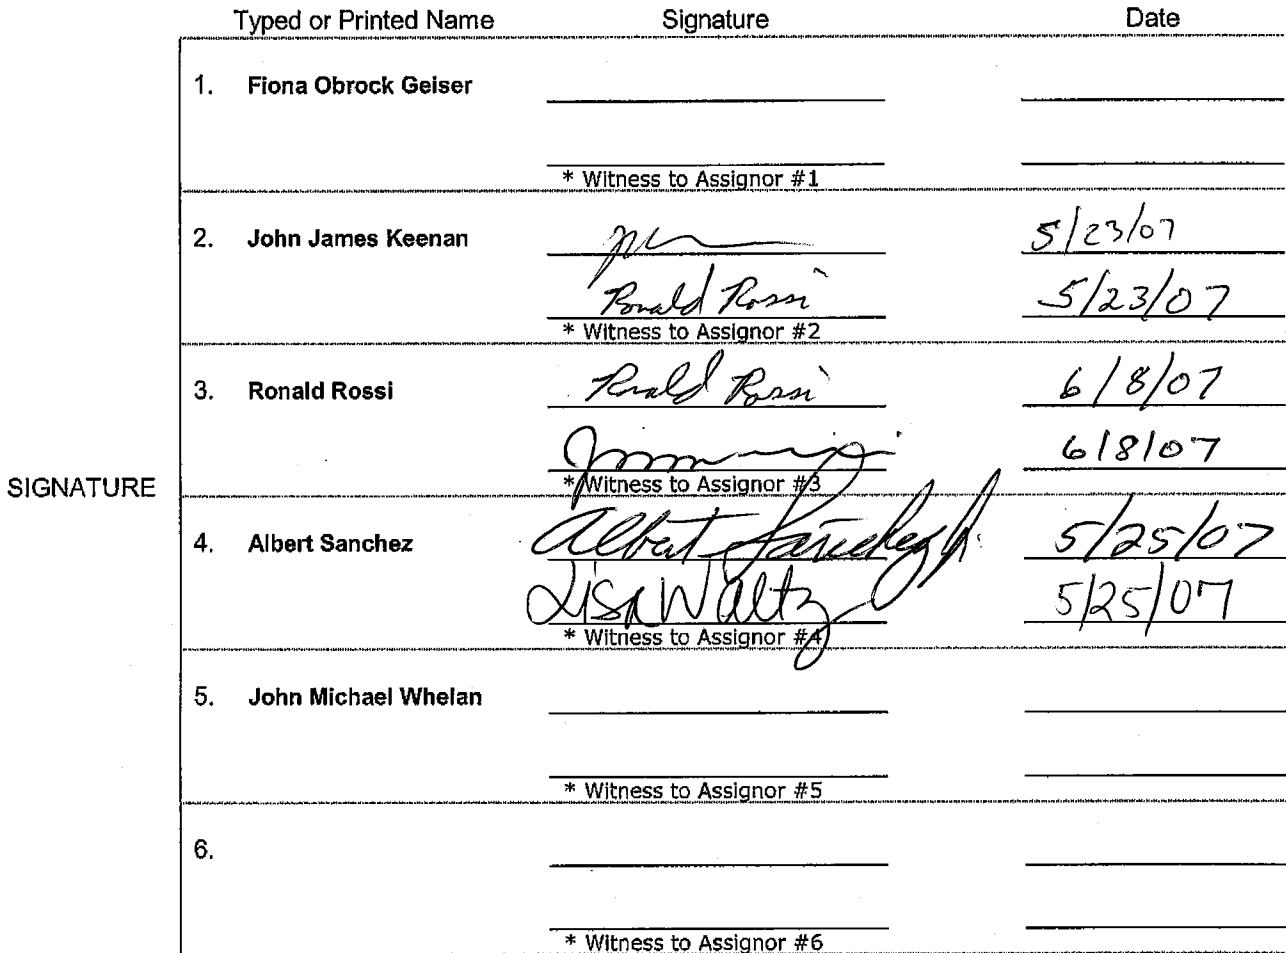 Typed or Printed Name Signature Date
1. Fiona Obrock Geiser
* Witness to Assignor #1
2. John James Keenan 5/23/07
Ronald Rossi 5/23/07
* Witness to Assignor #2
3. Ronald Rossi Ronald Rossi 6/8/07
6/8/07
* Witness to Assignor #3
SIGNATURE
4. Albert Sanchez Albert Sanchez Jr. 5/25/07
Lisa Waltz 5/25/07
* Witness to Assignor #4
5. John Michael Whelan
* Witness to Assignor #5
6.
* Witness to Assignor #6